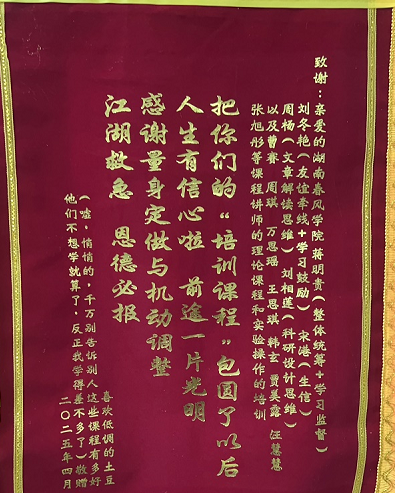 致谢：亲爱的湖南春风学院蒋明贵（整体统筹+学习监督）
刘冬艳（友谊牵线+学习鼓励） 宋港（生信）
周杨（文章解读思维） 刘相莲（科研设计思维）
以及曹赛 周琪 万思瑶 王思琪 韩玄 贾昊霖 汪慧慧
张旭彤等课程讲师的理论课程和实验操作的培训
把你们的“培训课程”包圆了以后
人生有信心啦 前途一片光明
感谢量身定做与机动调整
江湖救急 恩德必报
（嘘，悄悄的，千万别告诉别人这些课程有多好
他们不想学就算了，反正我学得差不多了）敬赠
喜欢低调的土豆
二〇二五年四月